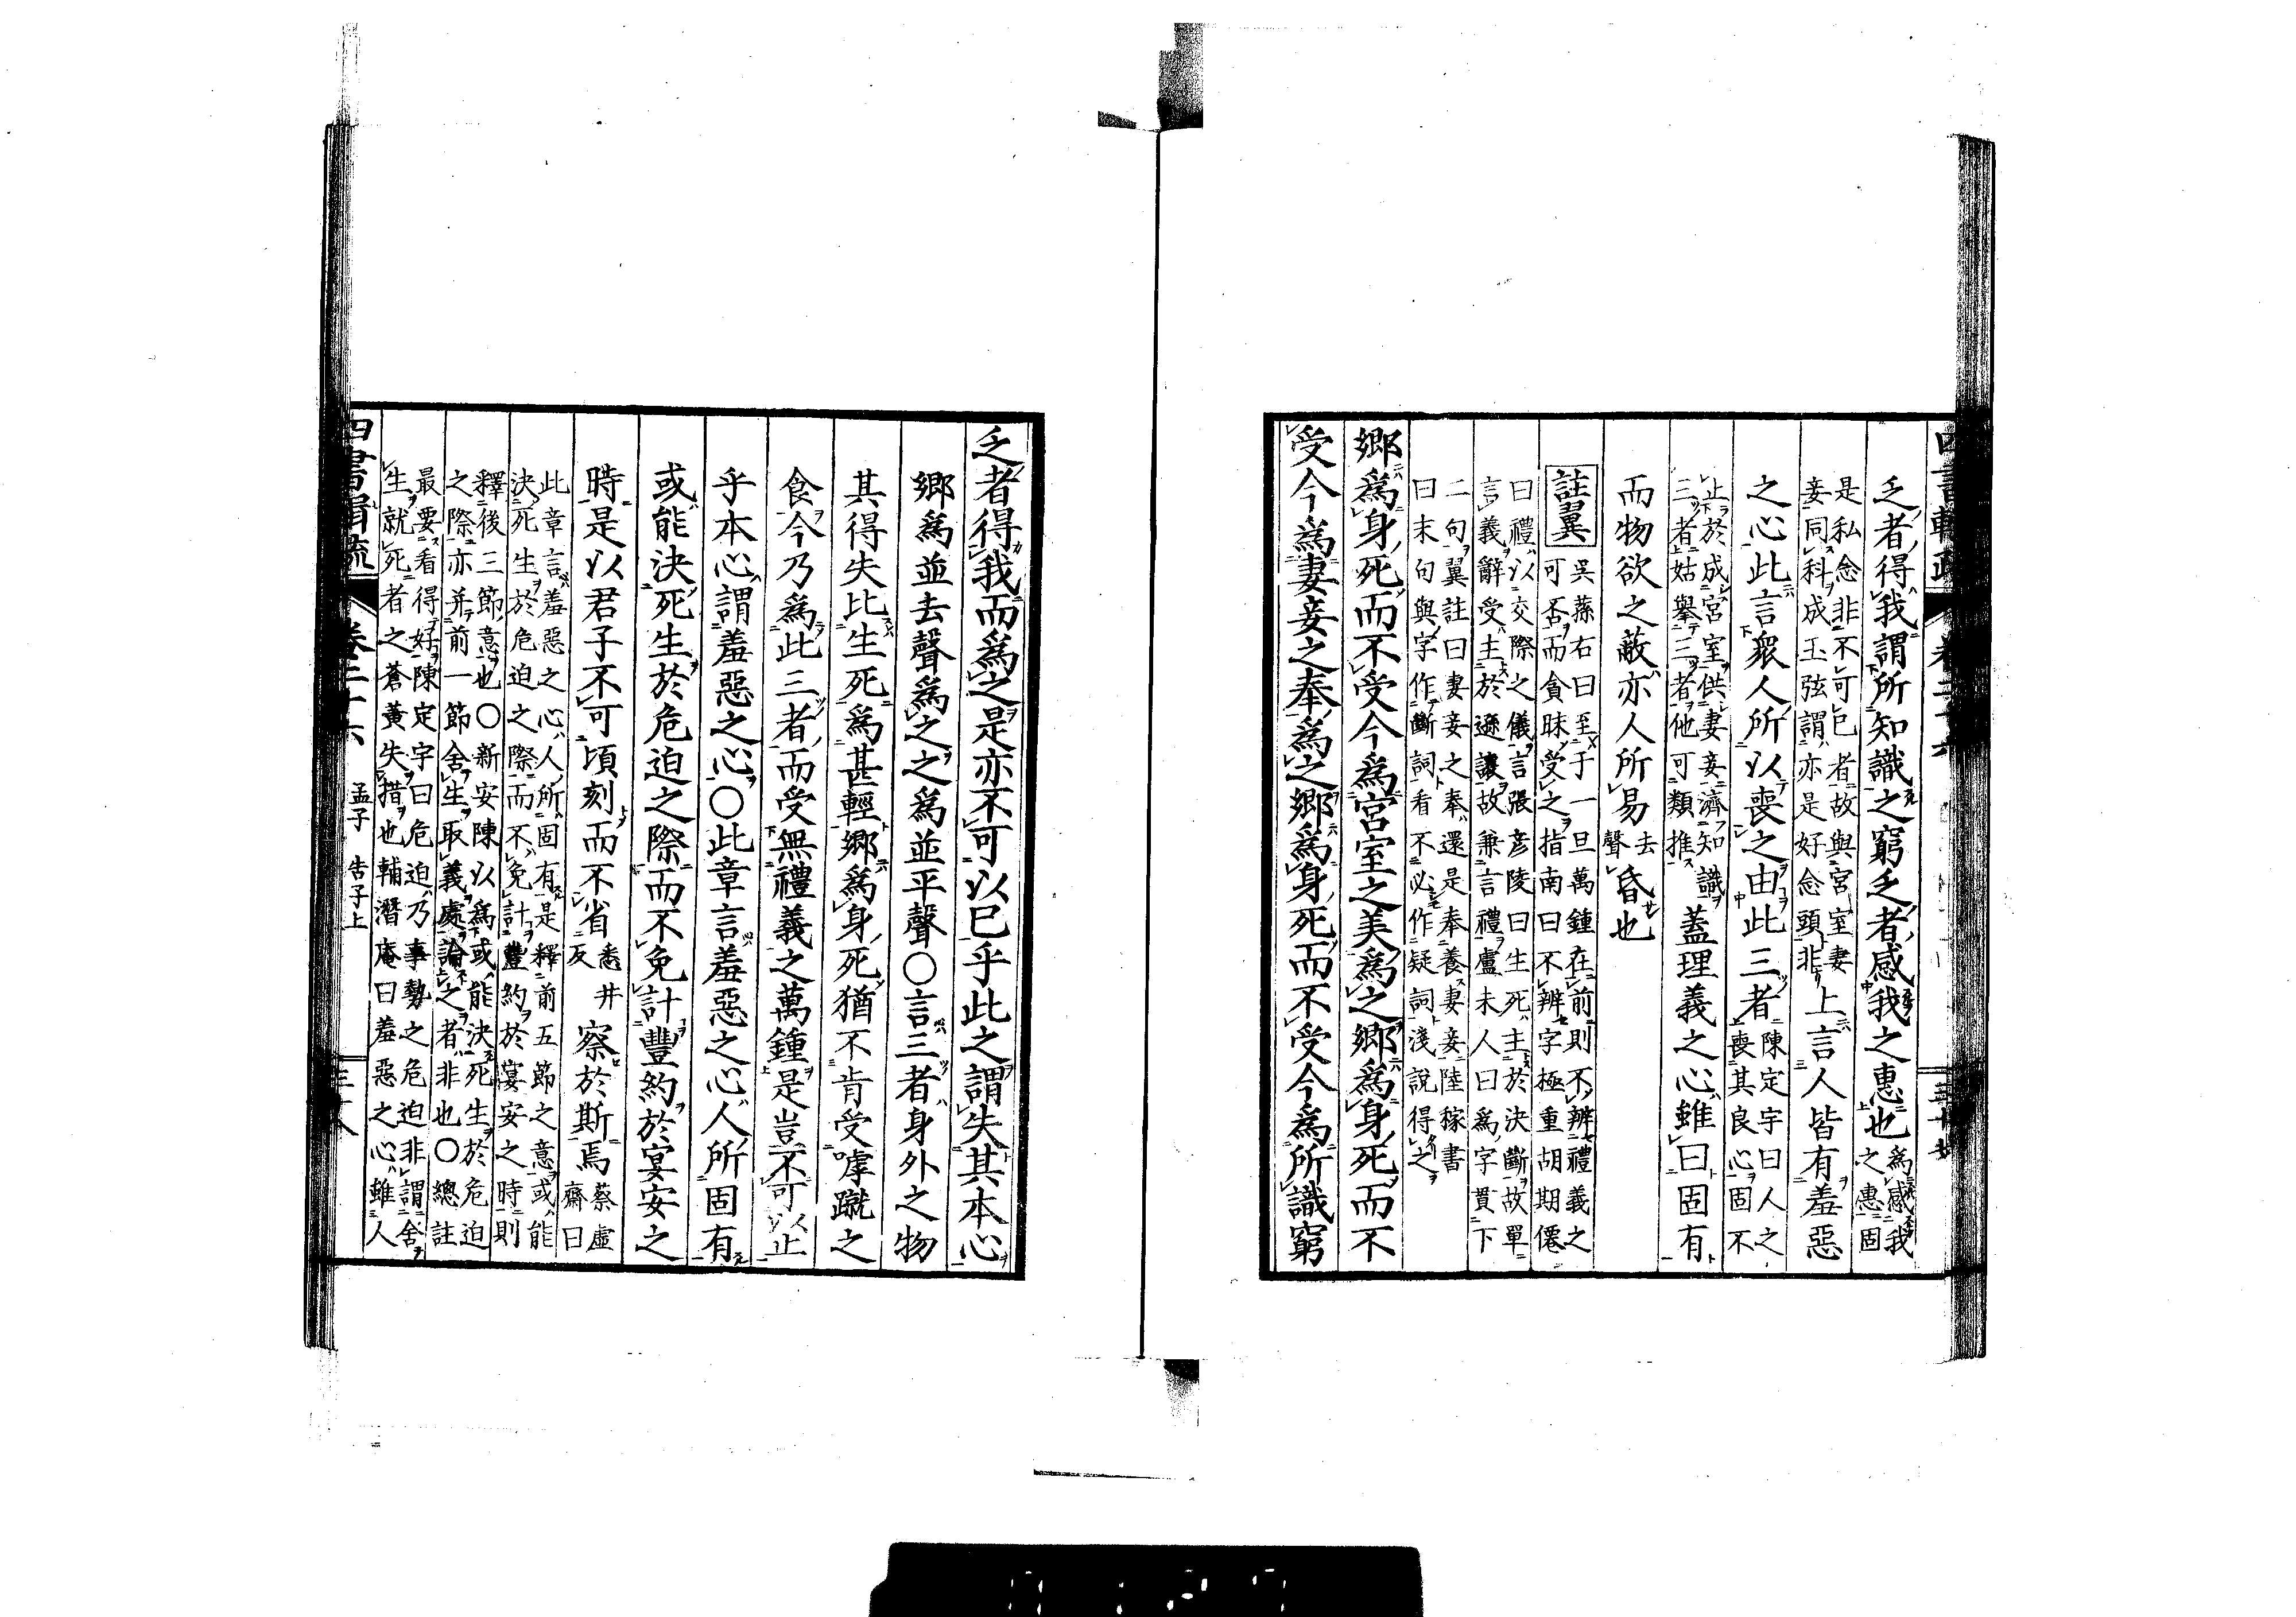 乏者得我謂所知識之窮乏者感我之惠也為感我之惠固
是私念非不可已者故與宮室妻
妾同科成玉弦謂亦是好念頭非
上言人皆有羞惡
之心此言衆人所以喪之由此三者
陳定字曰人之
喪其良心固不
止於成宮室供妻妾濟知識
三者姑舉三者他可類推
蓋理義之心雖曰固有
而物欲之蔽亦人所易去聲昏也
註翼
吳蓀右曰至于一旦萬鍾在前則不辨禮義之
可否而貪昧受之指南曰不辨字極重胡期僊
曰禮以交際之儀言張彥陵曰生死主於決斷故單
言義辭受主於遜讓故兼言禮盧未人曰為字貫下
二句翼註曰妻妾之奉還是奉養妻妾陸稼書
曰末句與字作斷詞看不必作疑詞淺說得之
鄉為身死而不受今為宮室之美為之鄉為身死而不
受今為妻妾之奉為之鄉為身死而不受今為所識窮
乏者得我而為之是亦不可以已乎此之謂失其本心
鄉為並去聲為之之為並平聲○言三者身外之物
其得失比生死為甚輕鄉為身死猶不肯受嘑蹴之
食今乃為此三者而受無禮義之萬鍾是豈不可以止
乎本心謂羞惡之心○此章言羞惡之心人所固有
或能決死生於危迫之際而不免計豐約於宴安之
時是以君子不可頃刻而不省悉井反察於斯焉
蔡虛
齋曰
此章言羞惡之心人所固有是釋前五節之意或能
決死生於危迫之際而不免計豐約於宴安之時則
釋後三節意也○新安陳以為或能決死生於危迫
之際亦并前一節舍生取義處論之者非也○總註
最要看得好陳定字曰危迫乃事勢之危迫非謂舍
生就死者之蒼黃失措也輔潛庵曰羞惡之心雖人
四書輯疏 卷二十六 孟子 告子上